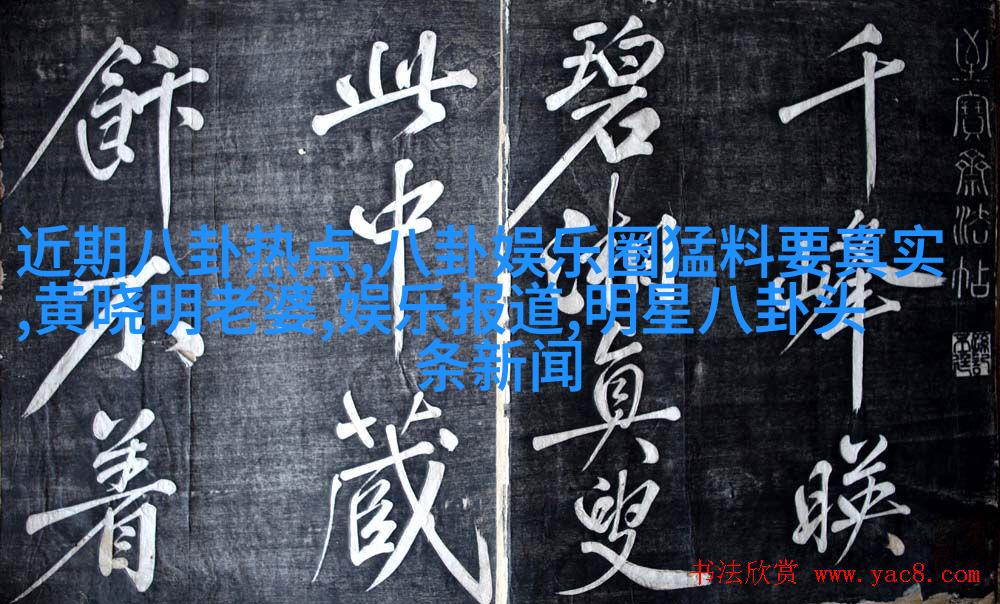 至寶齋法帖
千峰映
碧湘真叟
此中藏
飰不煮
近期八卦热点,八卦娱乐圈猛料要真实
,黄晓明老婆,娱乐报道,明星八卦头
条新闻
书法欣赏 www.yac8.com